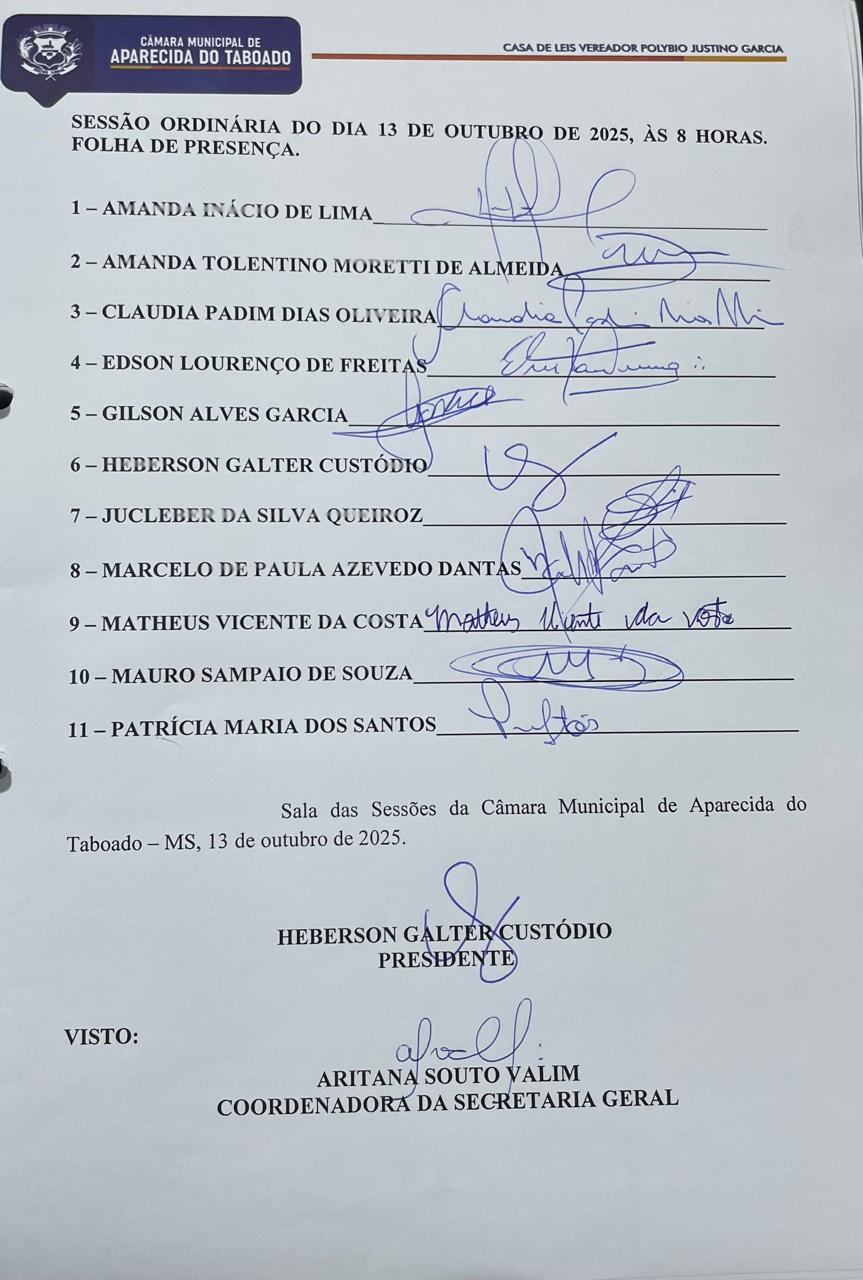 CÂMARA MUNICIPAL DE
APARECIDA DO TABOADO
CASA DE LEIS VEREADOR POLYBIO JUSTINO GARCIA
SESSÃO ORDINÁRIA DO DIA 13 DE OUTUBRO DE 2025, ÀS 8 HORAS.
FOLHA DE PRESENÇA.
1 – AMANDA INÁCIO DE LIMA
2 – AMANDA TOLENTINO MORETTI DE ALMEIDA
3 – CLAUDIA PADIM DIAS OLIVEIRA Claudia
4 – EDSON LOURENÇO DE FREITAS
5 – GILSON ALVES GARCIA
6 – HEBERSON GALTER CUSTÓDIO
7 – JUCLEBER DA SILVA QUEIROZ
8 – MARCELO DE PAULA AZEVEDO DANTAS
9 – MATHEUS VICENTE DA COSTA Matheus Vicente da Costa
10 – MAURO SAMPAIO DE SOUZA
11 – PATRÍCIA MARIA DOS SANTOS
Sala das Sessões da Câmara Municipal de Aparecida do
Taboado – MS, 13 de outubro de 2025.
HEBERSON GALTER CUSTÓDIO
PRESIDENTE
VISTO:
ARITANA SOUTO VALIM
COORDENADORA DA SECRETARIA GERAL